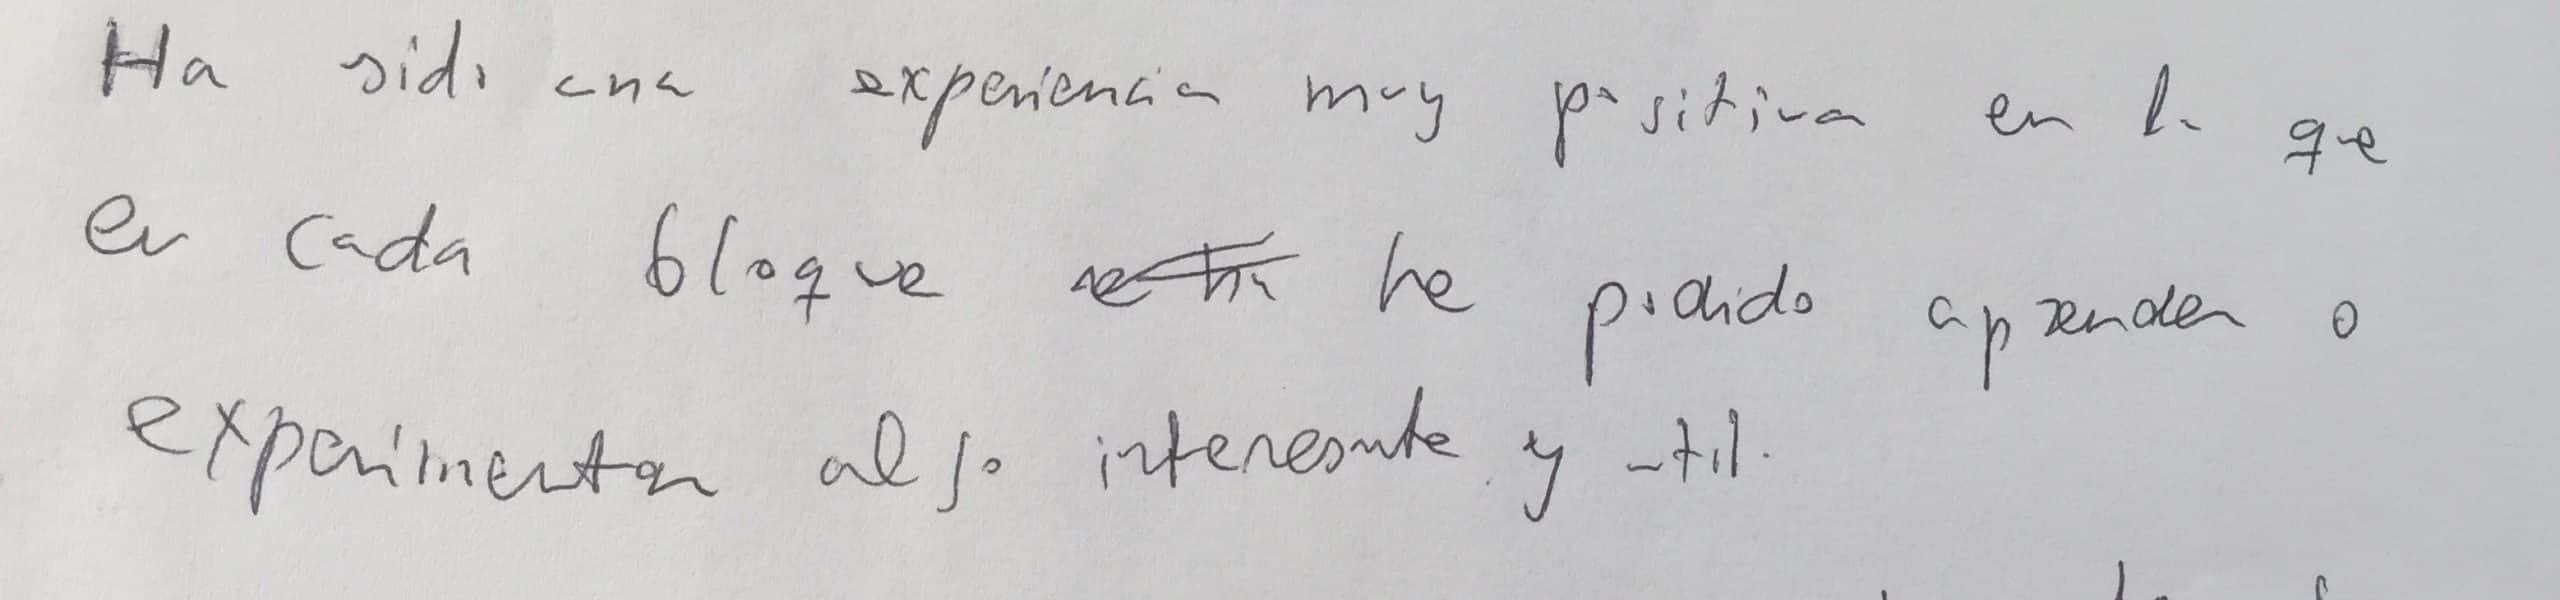 Ha sido una experiencia muy positiva en la que
en cada bloque se ha he podido aprender o
experimentar algo interesante y util.